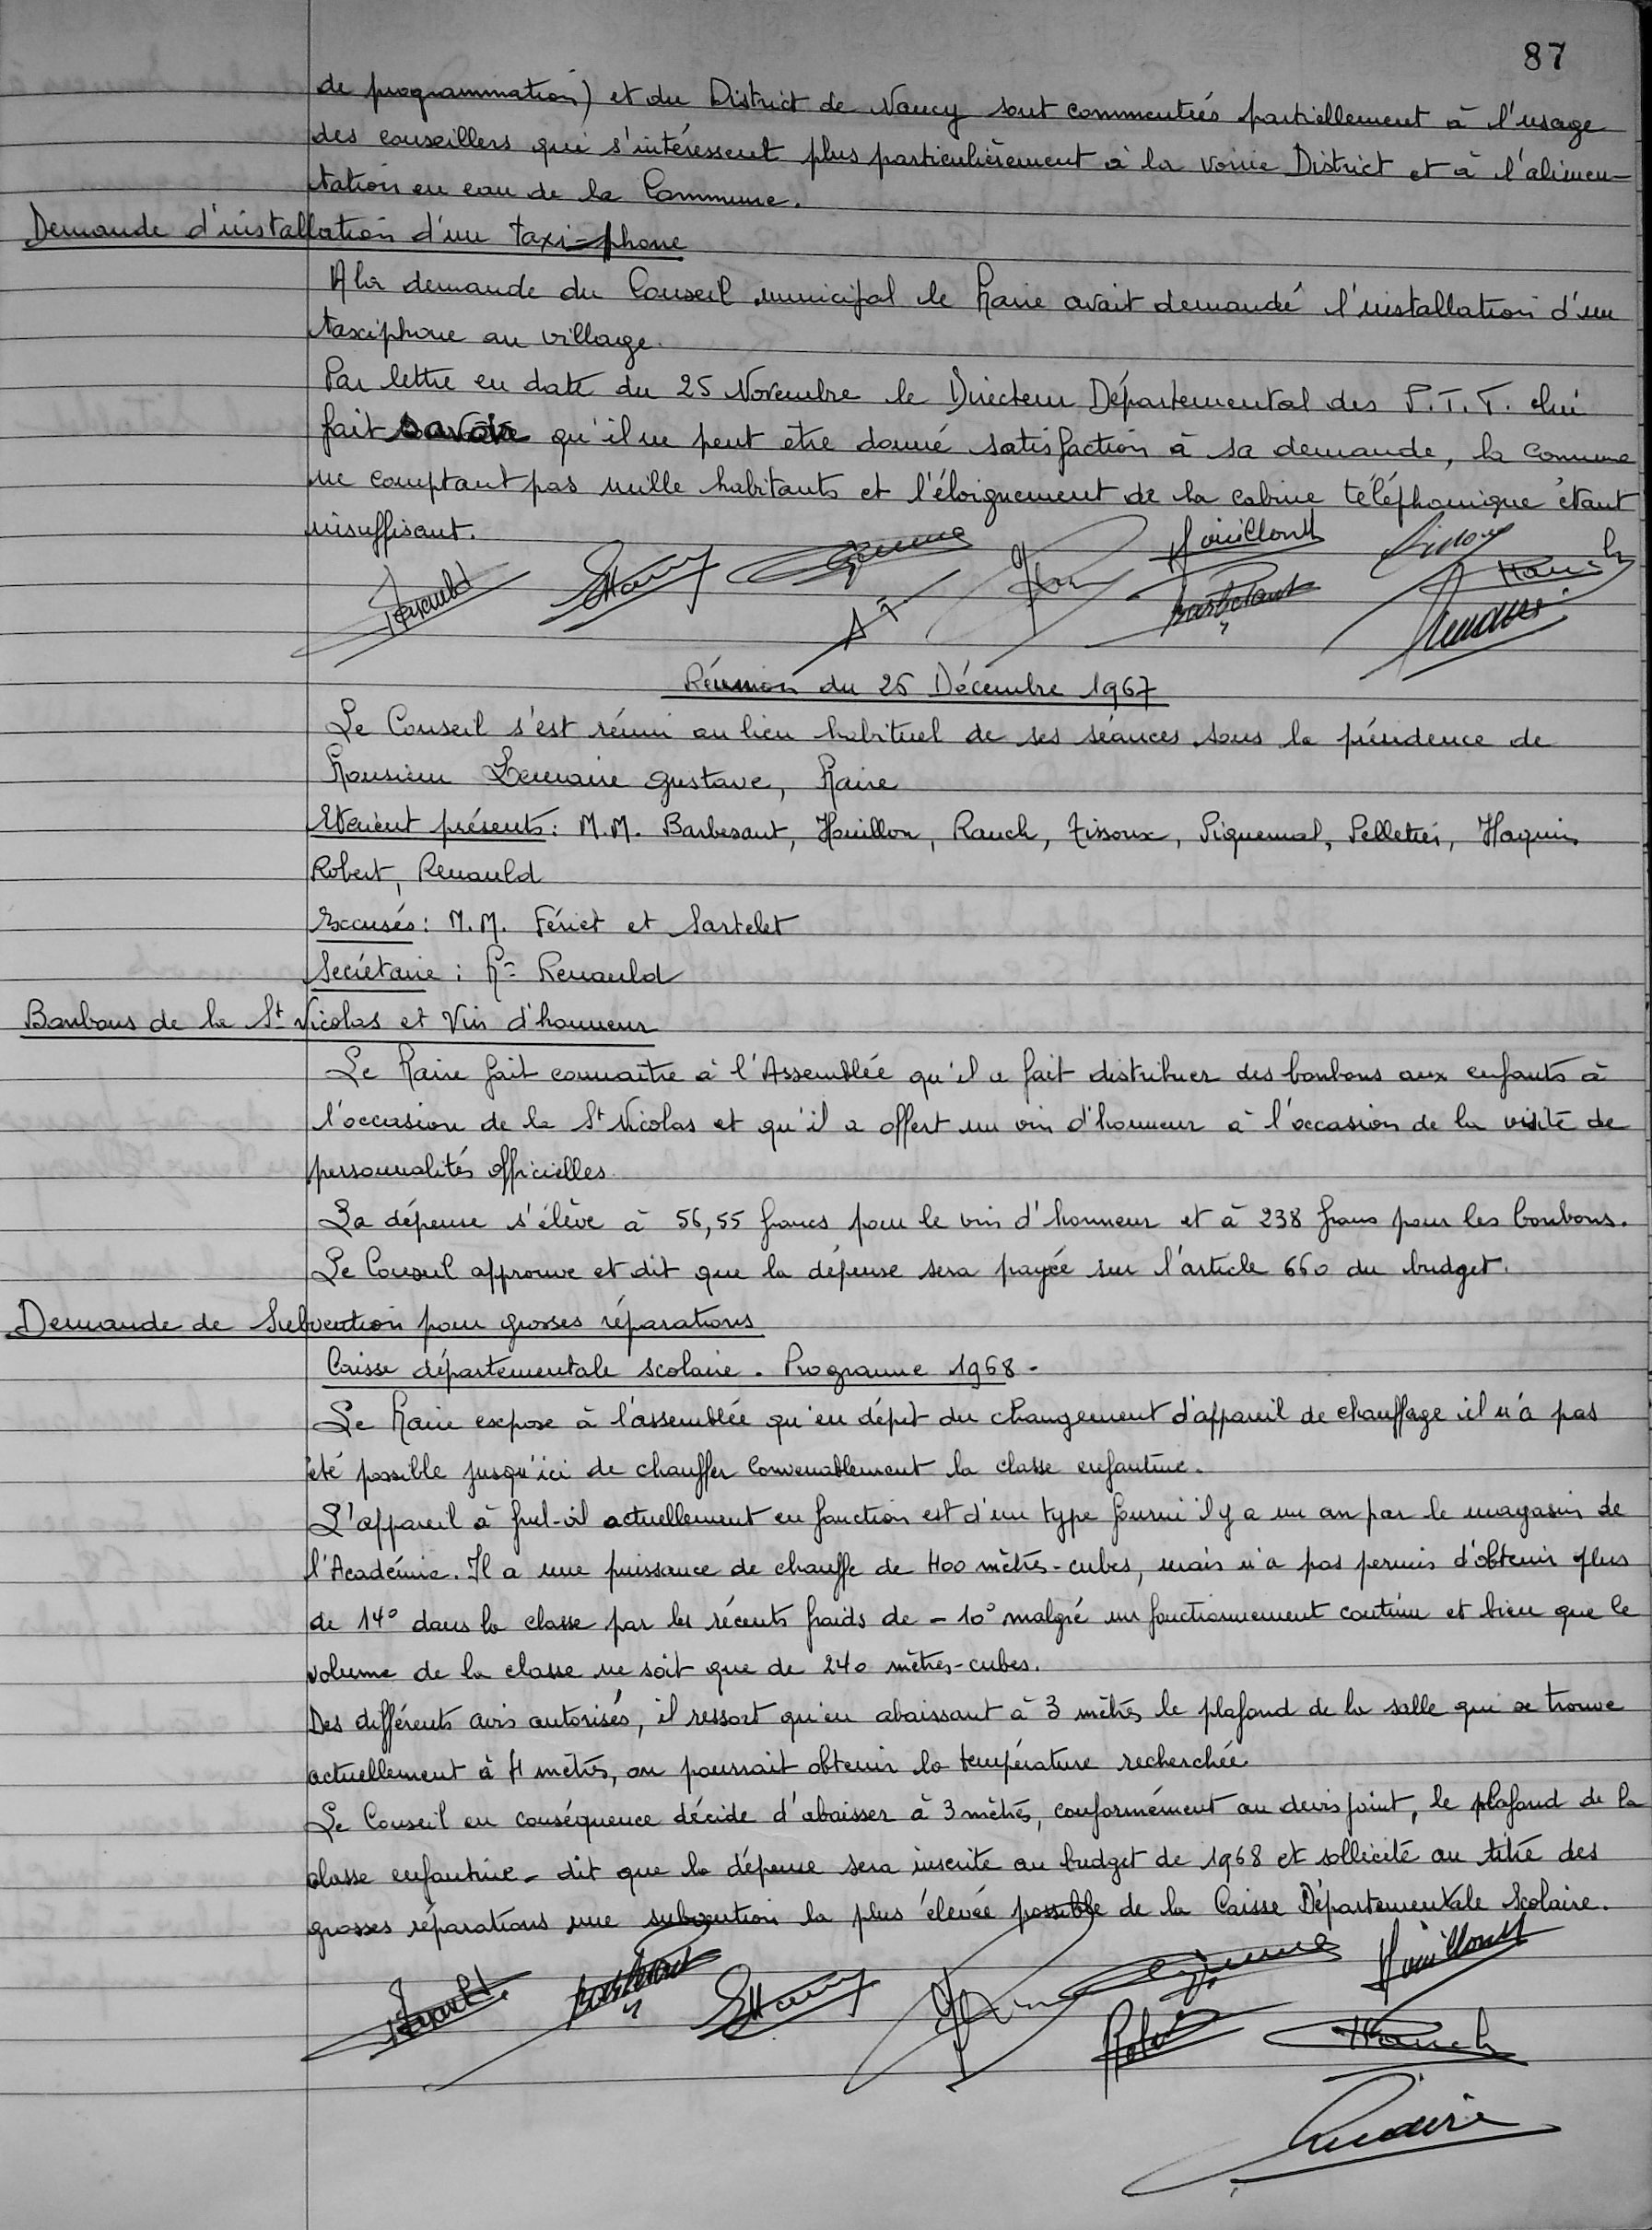 87
de programmation) et du District de Nancy sont commentés partiellement à l'usage
des conseillers qui s'intéressent plus particulièrement à la voirie District et à l'alimen-
tation en eau de la Commune.
Demande d'installation d'un taxi-phone
A la demande du Conseil municipal le Maire avait demandé l'installation d'un
taxiphone au village.
Par lettre en date du 25 Novembre le Directeur Départemental des P.T.T. lui
fait savoir qu'il ne peut être donné satisfaction à sa demande, la commune
ne comptant pas mille habitants et l'éloignement de la cabine téléphonique étant
insuffisant.
Réunion du 26 Décembre 1967
Le Conseil s'est réuni au lieu habituel de ses séances sous la présidence de
Monsieur Lemaire Gustave, Maire
Etaient présents : M.M. Barbesant, Houillon, Rauch, Tissoux, Piquemal, Pelletier, Haquin
Robert, Renauld
Excusés : M.M. Fériet et Sartelet
Secrétaire : Mr Renauld
Bonbons de la St Nicolas et Vin d'honneur
Le Maire fait connaître à l'Assemblée qu'il a fait distribuer des bonbons aux enfants à
l'occasion de la St Nicolas et qu'il a offert un vin d'honneur à l'occasion de la visite de
personnalités officielles.
La dépense s'élève à 56,55 francs pour le vin d'honneur et à 238 francs pour les bonbons.
Le Conseil approuve et dit que la dépense sera payée sur l'article 660 du budget.
Demande de Subvention pour grosses réparations
Caisse départementale scolaire. Programme 1968 -
Le Maire expose à l'assemblée qu'en dépit du changement d'appareil de chauffage il n'a pas
été possible jusqu'ici de chauffer convenablement la classe enfantine.
L'appareil à fuel-oil actuellement en fonction est d'un type fourni il y a un an par le magasin de
l'Académie. Il a une puissance de chauffe de 400 mètres-cubes, mais n'a pas permis d'obtenir plus
de 14° dans la classe par les récents froids de - 10° malgré un fonctionnement continu et bien que le
volume de la classe ne soit que de 240 mètres-cubes.
Des différents avis autorisés, il ressort qu'en abaissant à 3 mètres le plafond de la salle qui se trouve
actuellement à 4 mètres, on pourrait obtenir la température recherchée.
Le Conseil en conséquence décide d'abaisser à 3 mètres, conformément au devis joint, le plafond de la
classe enfantine - dit que la dépense sera inscrite au budget de 1968 et sollicite au titre des
grosses réparations une subvention la plus élevée possible de la Caisse Départementale Scolaire.